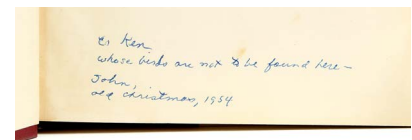 to Ken,
whose birds are not to be found here –
John,
old christmas, 1954